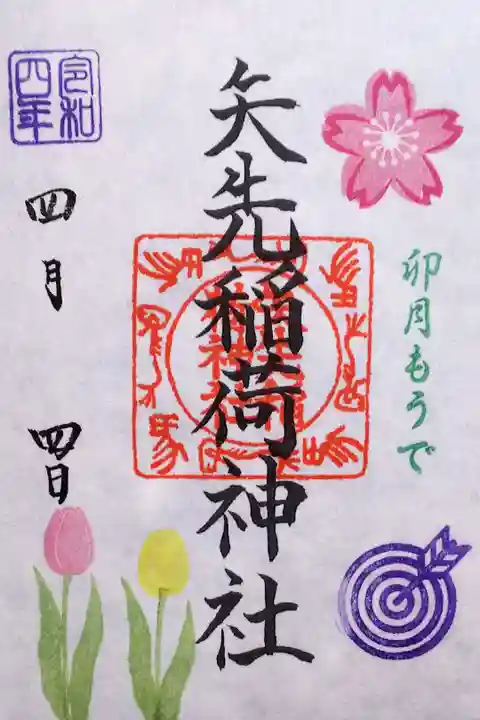 卯月もうで
矢先稲荷神社
令和四年
四月 四日